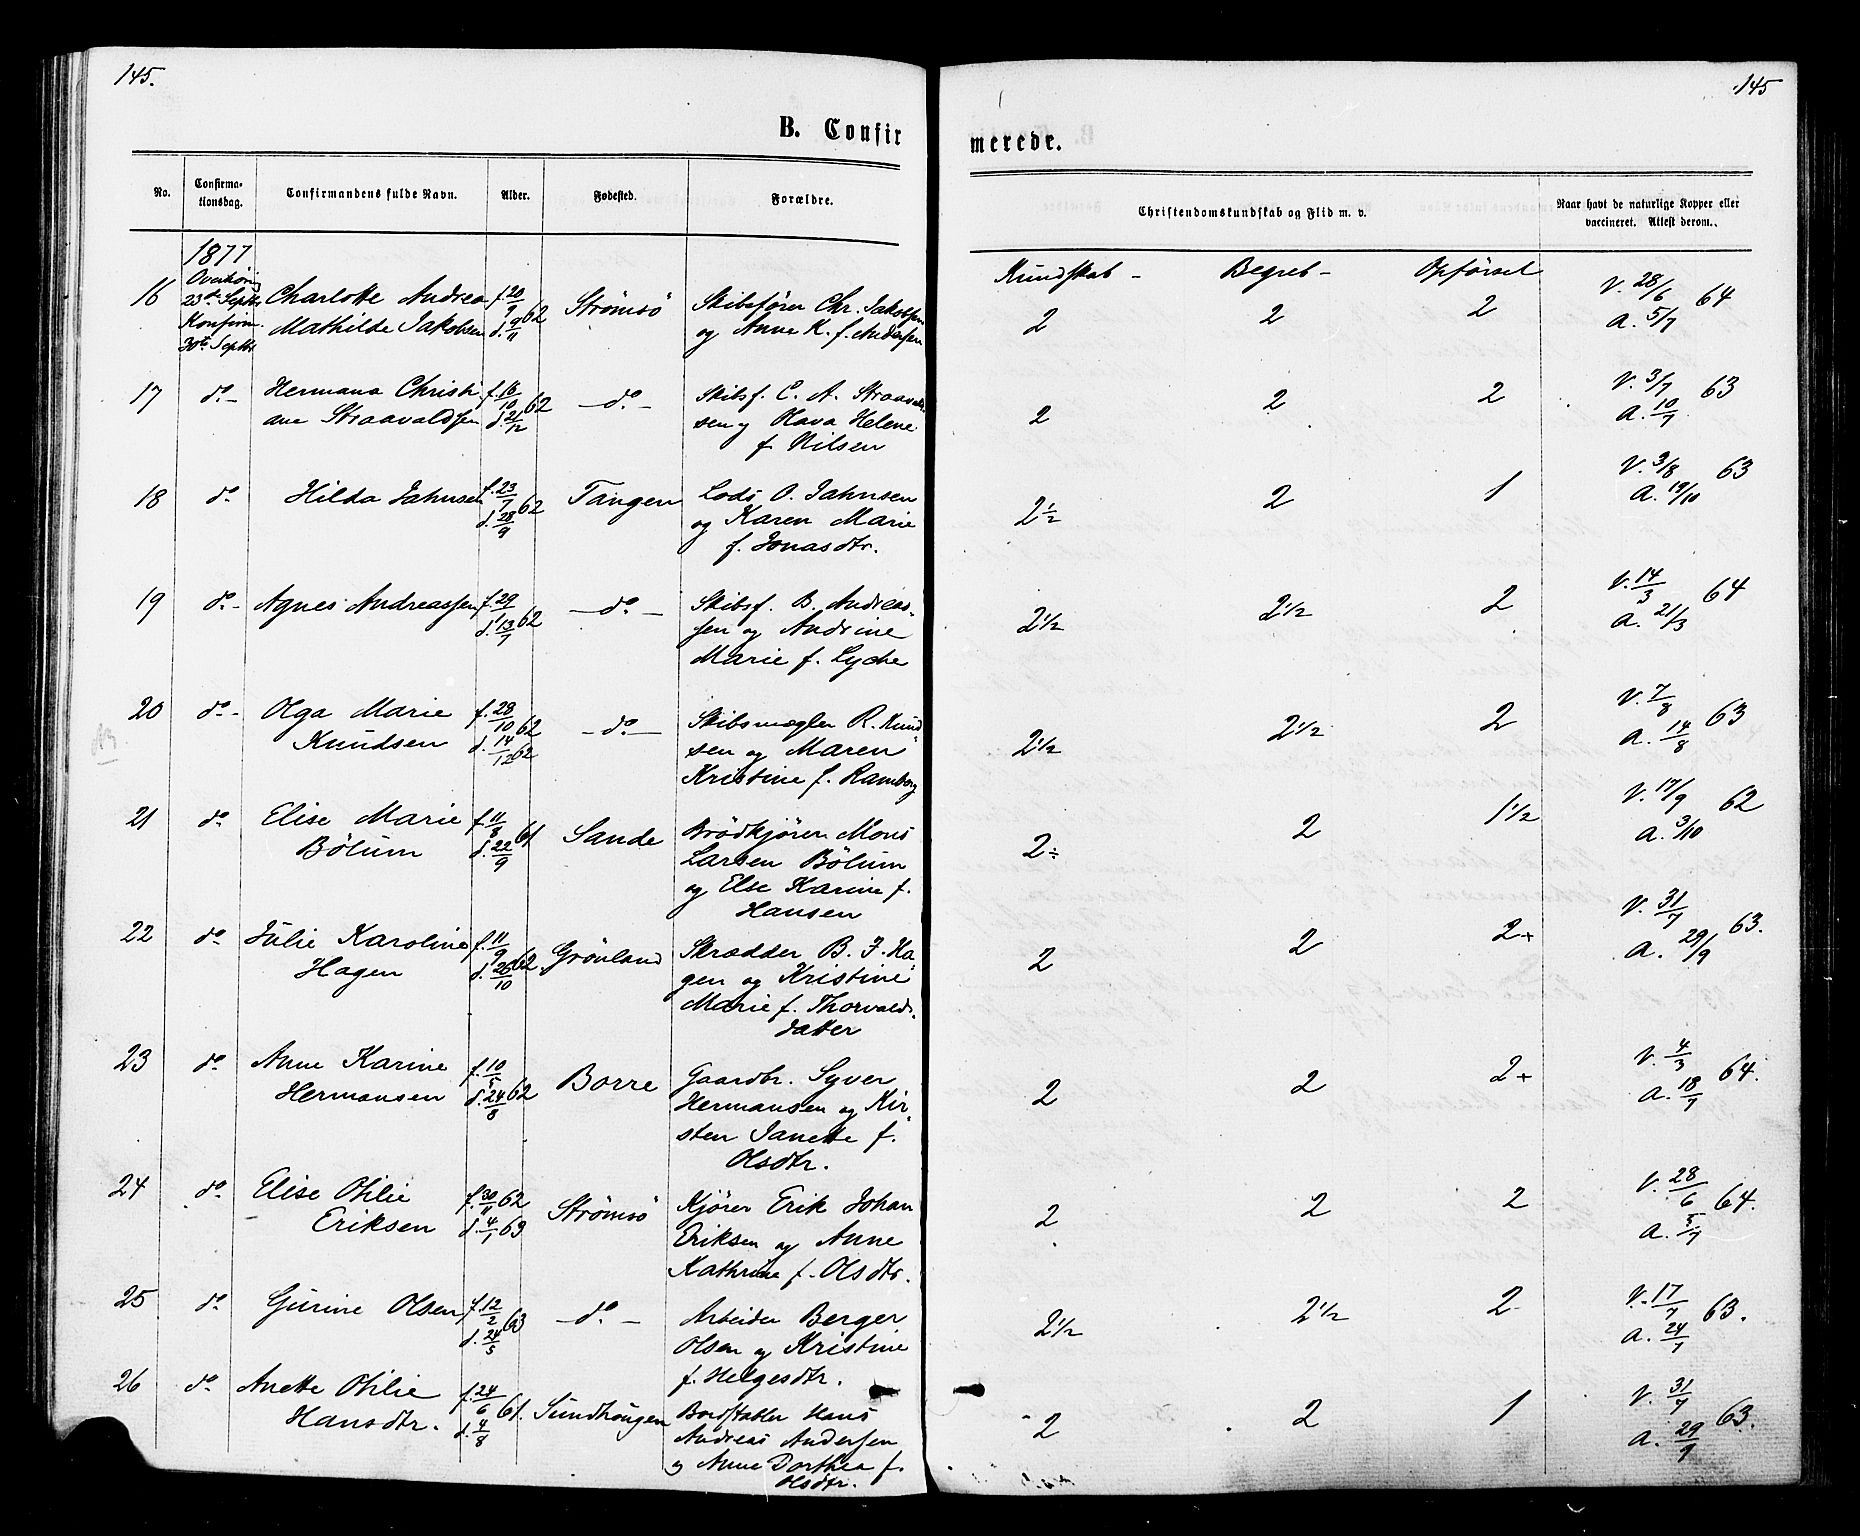 145.
145
B. Confir
merede.
No.
Confirma-
tionsdag.
Confirmandens fulde Navn.
Alder.
Fødested.
Forældre.
Christendomskundskab og Flid m. v.
Naar havt de naturlige Kopper eller
vaccineret. Attest derom.
1877
Kundskab - Begreb - Opførsel
16 Overhøring 23de Septbr. Konfirm. 30te Septbr
Charlotte Andrea
Mathilde Jakobsen
f. 20/9 62
d. 9/11
Strömsö
Skibsfører Chr. Jakobsen
og Anne K. f. Andersen
2 2 2
V. 28/6 64
A. 5/7
17 do -
Hermana Christi
ane Straavaldsen
f. 16/10 62
d. 21/12
- do. -
Skibsf. C. A. Straavald-
sen og Olava Helene
f. Nilsen
2 2 2
V. 3/7 63
A. 10/7
18 do
Hilda Jahnsen
f. 23/7 62
d. 28/9
Tangen
Lods O. Jahnsen
og Karen Marie
f. Jonasdtr.
2 1/2 2 1
V. 3/8 63
A. 19/10
19 do -
Agnes Andreassen
f. 29/ 62
d. 13/7
- do -
Skibsf. B. Andreas-
sen og Andrine
Marie f. Lyche
2 1/2 2 1/2 2
V. 14/3 64
A. 21/3
20 do -
Olga Marie
Knudsen
f. 28/10 62
d. 14/12 62
- do. -
Skibsmægler R. Knud-
sen og Maren
Kristine f. Ramberg
2 1/2 2 1/2 2
V. 7/8 63
A. 14/8
21 do
Elise Marie
Bölum
f. 11/8 61
d. 22/9
Sande
Brödkjörer Mons
Larsen Bölum
og Else Karine f.
Hansen
2 ÷ 2 1 1/2
V. 17/9 62
A. 3/10
22 do
Julie Karoline
Hagen
f. 11/9 62
d. 26/10
Grönland
Skrædder B. F. Ha-
gen og Kristine
Marie f. Thorvalds-
datter
2 2 2+
V. 31/7 63.
A. 29/9
23 do
Anne Karine
Hermansen
f. 10/5 62
d. 24/8
Borre
Gaardbr. Syver
Hermansen og Kir-
sten Janette f.
Olsdtr.
2 2 2+
V. 4/3 64.
A. 18/7
24 do
Elise Otilie
Eriksen
f. 30/11 62
d. 4/1 63
Strömsö
Kjörer Erik Johan
Eriksen og Anne
Kathrine f. Olsdtr.
2 2 2
V. 28/6 64.
A. 5/7
25 do
Gurine Olsen
f. 12/2 63
d. 24/5
- do. -
Arbeider Berger
Olsen og Kristine
f. Helgesdtr.
2 1/2 2 1/2 2
V. 17/7 63.
A. 24/7
26 do
Anette Otilie
Hansdtr.
f. 24/6 61.
d. 4/8
Sundhougen
Bordstabler Hans
Andreas Andersen
og Anne Dorthea f.
Olsdtr.
2 2 1
V. 31/7 63.
A. 29/9